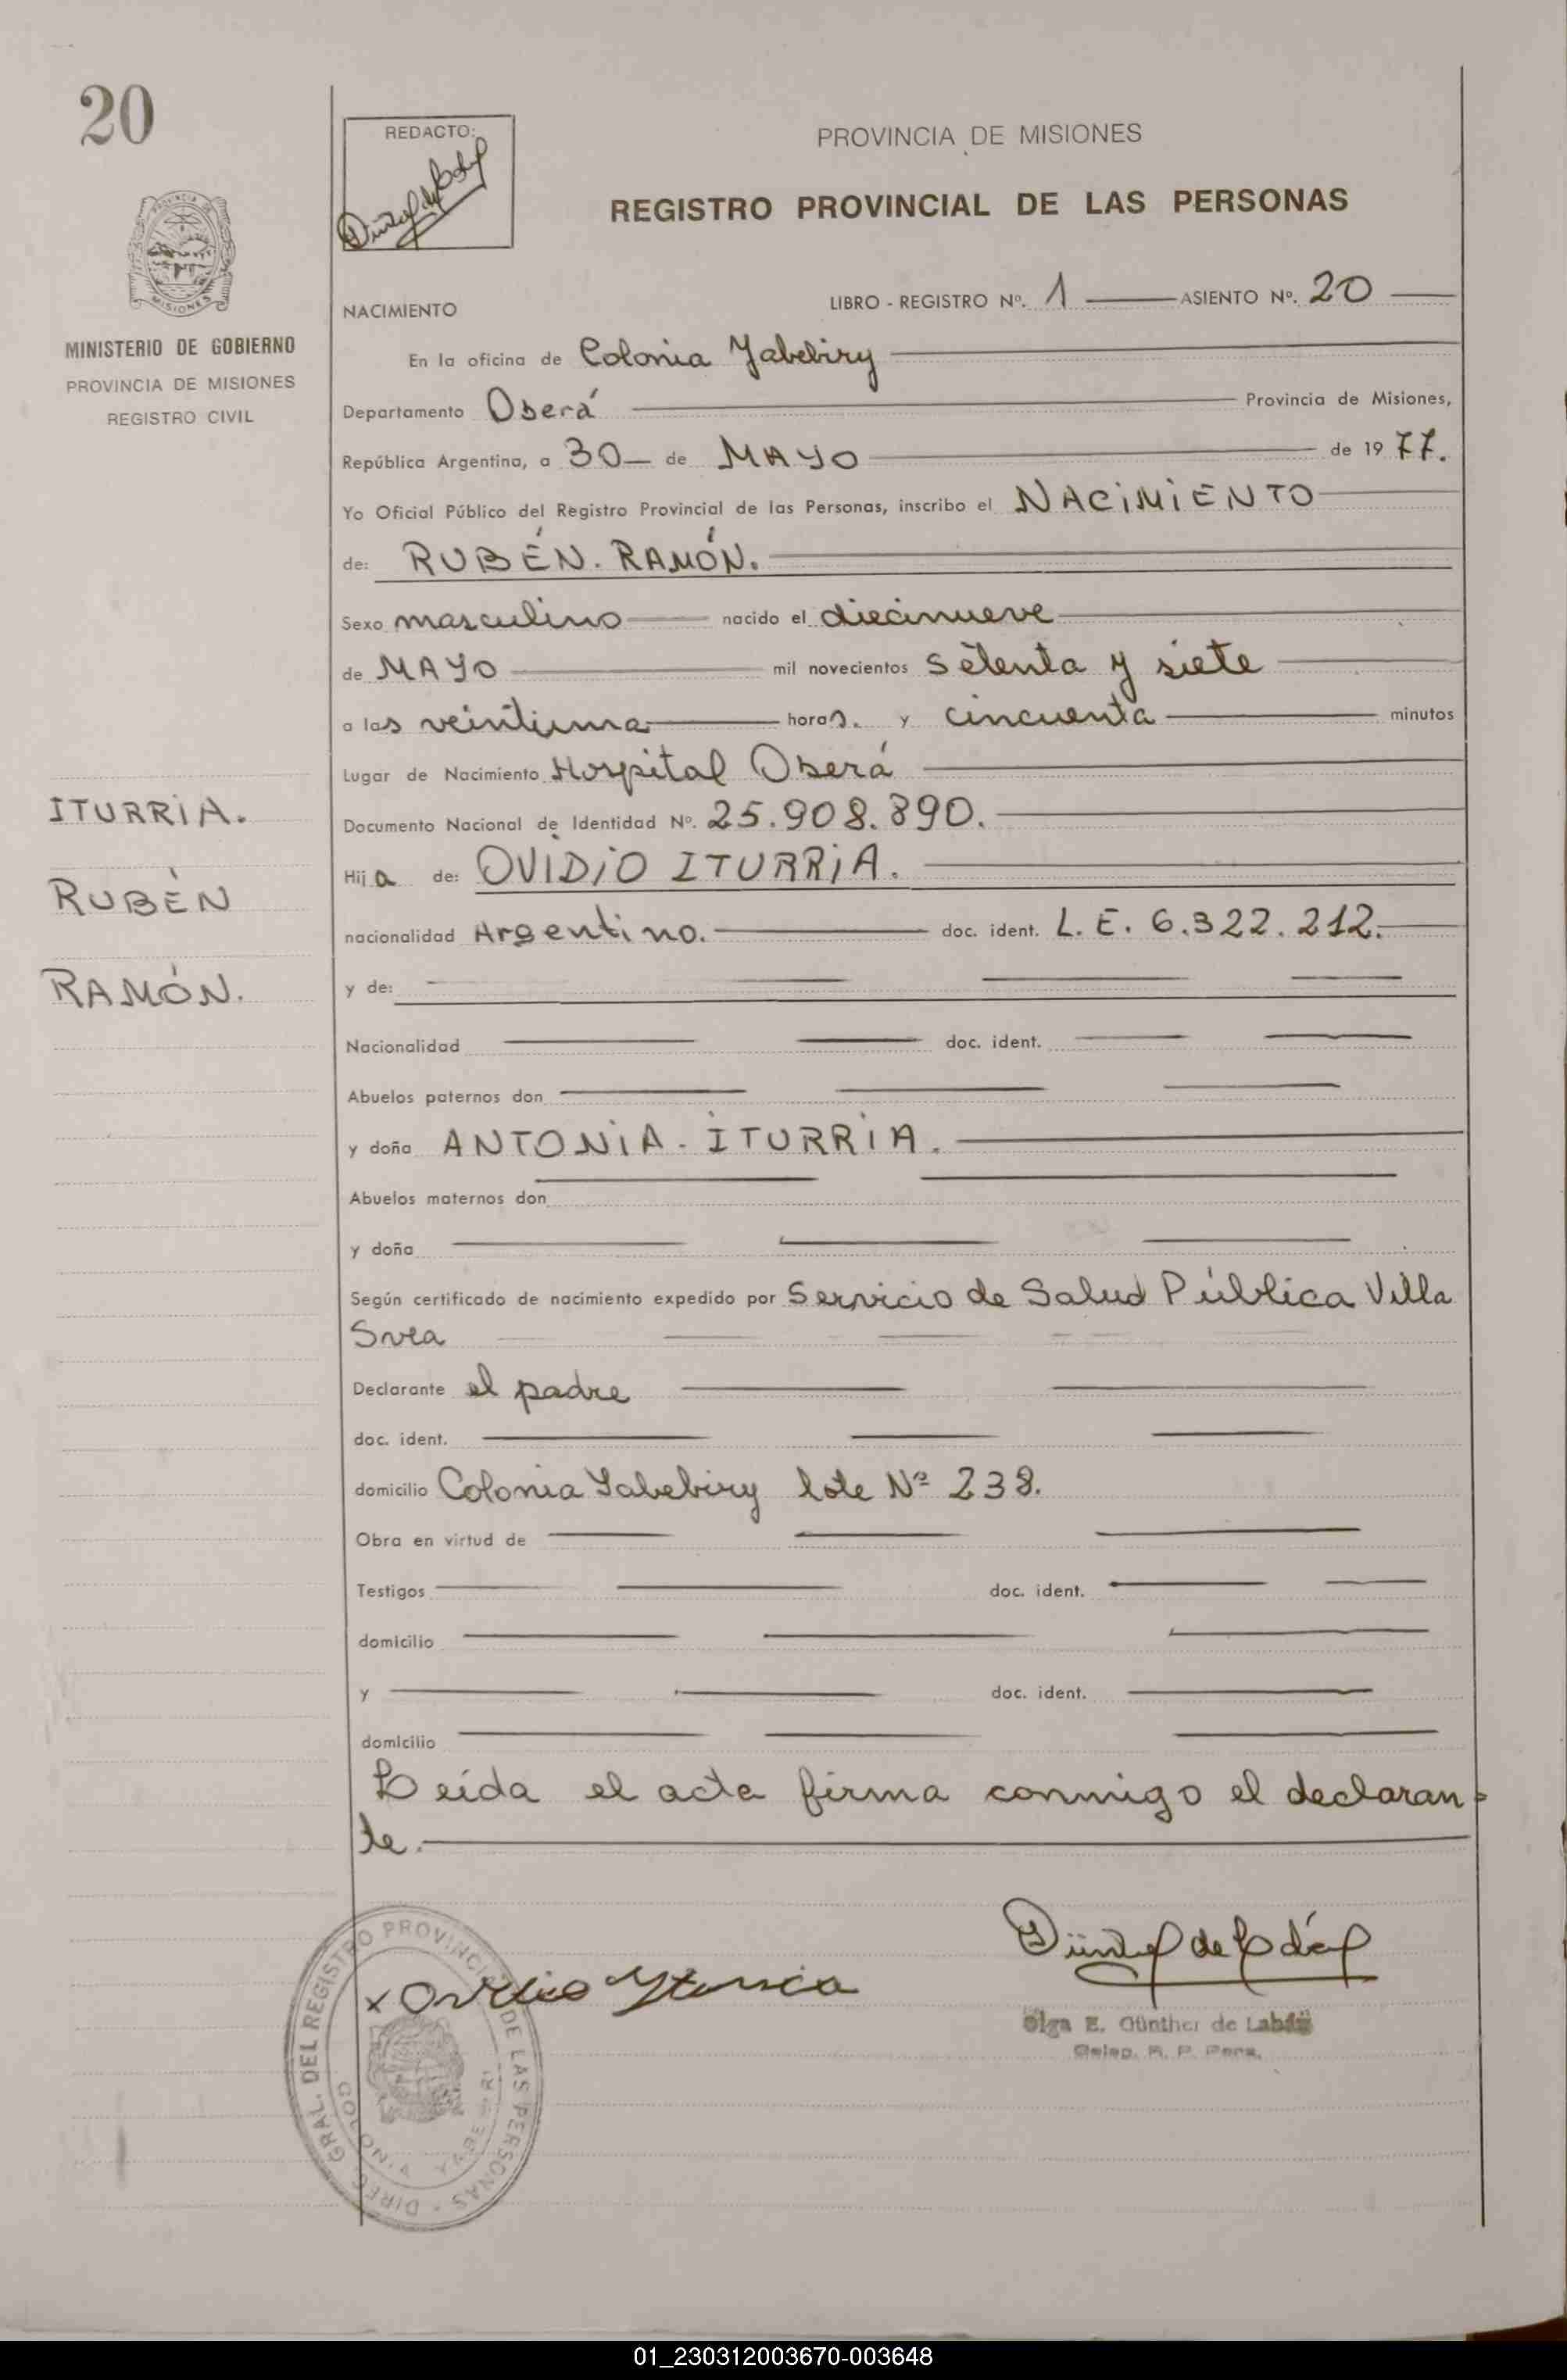 20
REDACTO:
PROVINCIA DE MISIONES
REGISTRO PROVINCIAL DE LAS PERSONAS
MISIONES
MINISTERIO DE GOBIERNO
PROVINCIA DE MISIONES
REGISTRO CIVIL
NACIMIENTO LIBRO - REGISTRO Nº. 1 ASIENTO Nº. 20
En la oficina de Colonia Yabebiry
Departamento Oberá Provincia de Misiones,
República Argentina, a 30 de MAYO de 1977.
Yo Oficial Público del Registro Provincial de las Personas, inscribo el NACIMIENTO
de: RUBÉN. RAMÓN.
Sexo masculino nacido el diecinueve
de MAYO mil novecientos setenta y siete
a las veintiuna horas. y cincuenta minutos
Lugar de Nacimiento Hospital Oberá
ITURRIA.
RUBÉN
RAMÓN.
Documento Nacional de Identidad Nº. 25.908.890.
Hija de: OVIDIO ITURRIA.
nacionalidad Argentino. doc. ident. L.E. 6.322.212.
y de:
Nacionalidad doc. ident.
Abuelos paternos don
y doña ANTONIA - ITURRIA.
Abuelos maternos don
y doña
Según certificado de nacimiento expedido por Servicio de Salud Pública Villa
Svea
Declarante el padre
doc. ident.
domicilio Colonia Yabebiry lote Nº 238.
Obra en virtud de
Testigos doc. ident.
domicilio
y doc. ident.
domicilio
Leída el acta firma conmigo el declaran-
te.
x Ovidio Yturria
Olga E. Günther de
R. P. Pers.
DIREC. GRAL. DEL REGISTRO PROVINCIAL DE LAS PERSONAS -
COLONIA
01_230312003670-003648